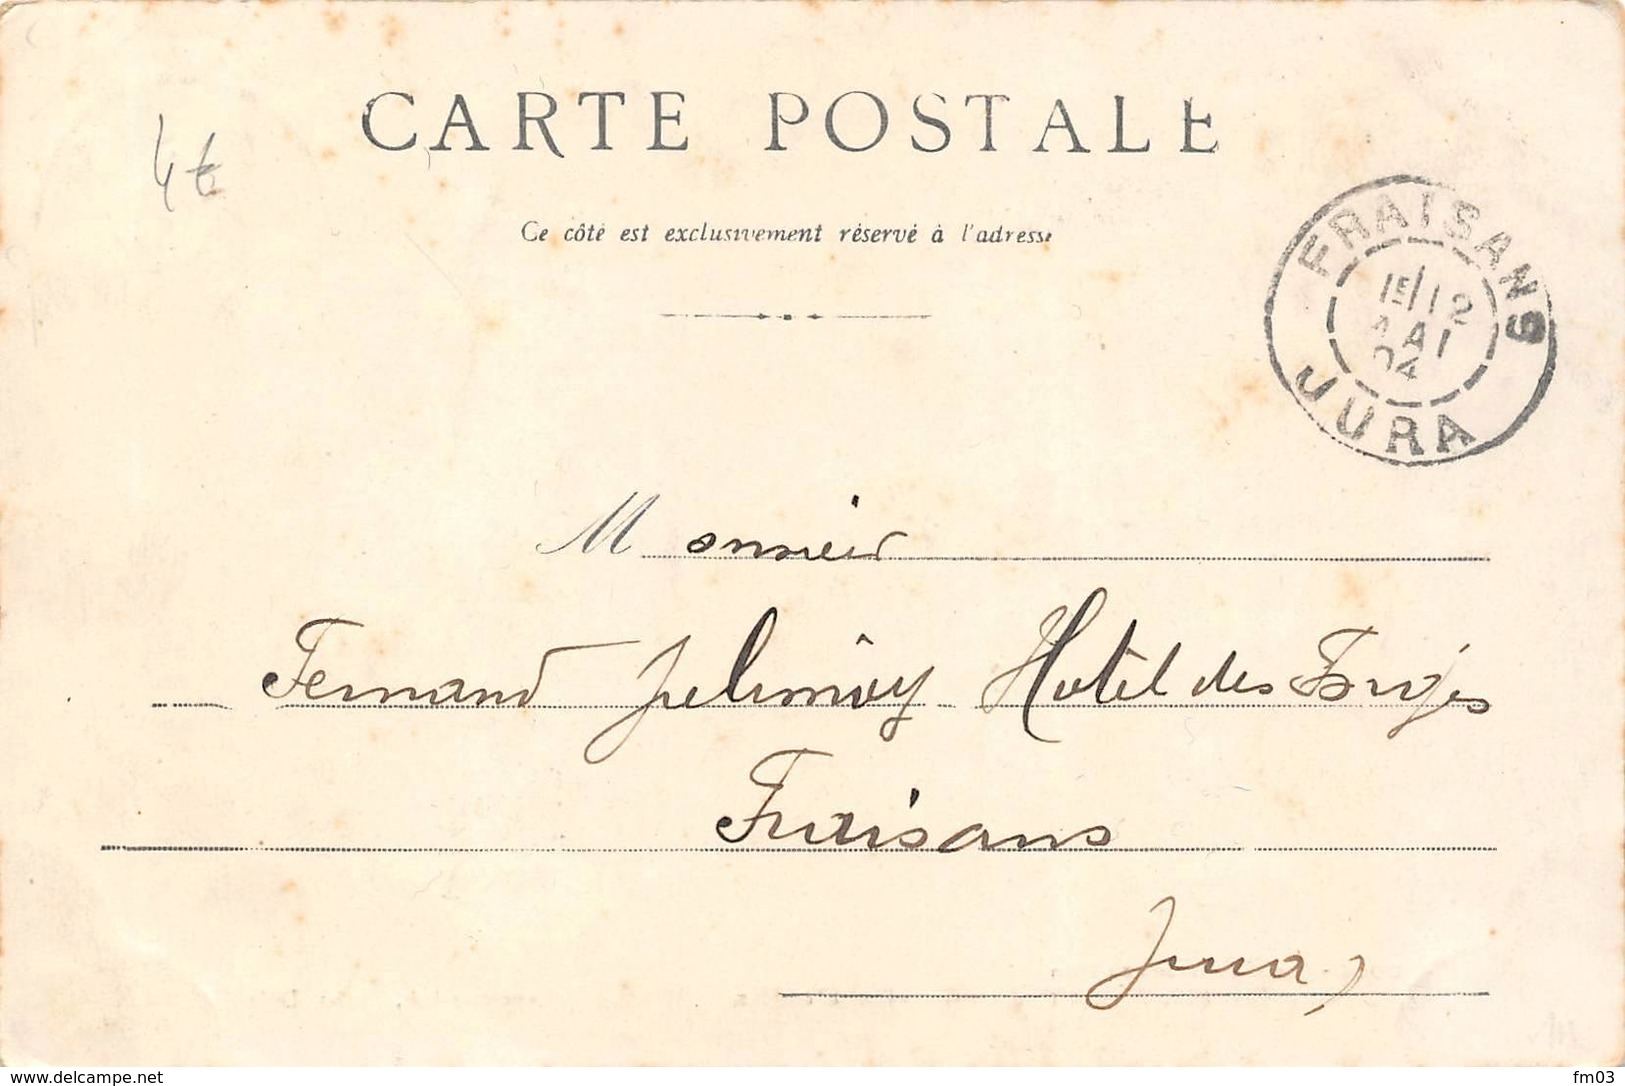 CARTE POSTALE
4€
Ce côté est exclusivement réservé à l'adresse
FRAISANS
12
MAI
04
JURA
Monsieur
Fernand Hotel des Forges
Fraisans
Jura
www.delcampe.net
fm03